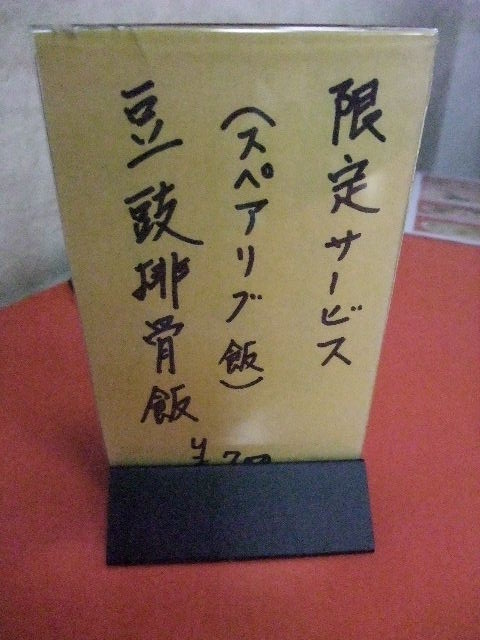 限定サービス
(スペアリブ飯)
豆豉排骨飯